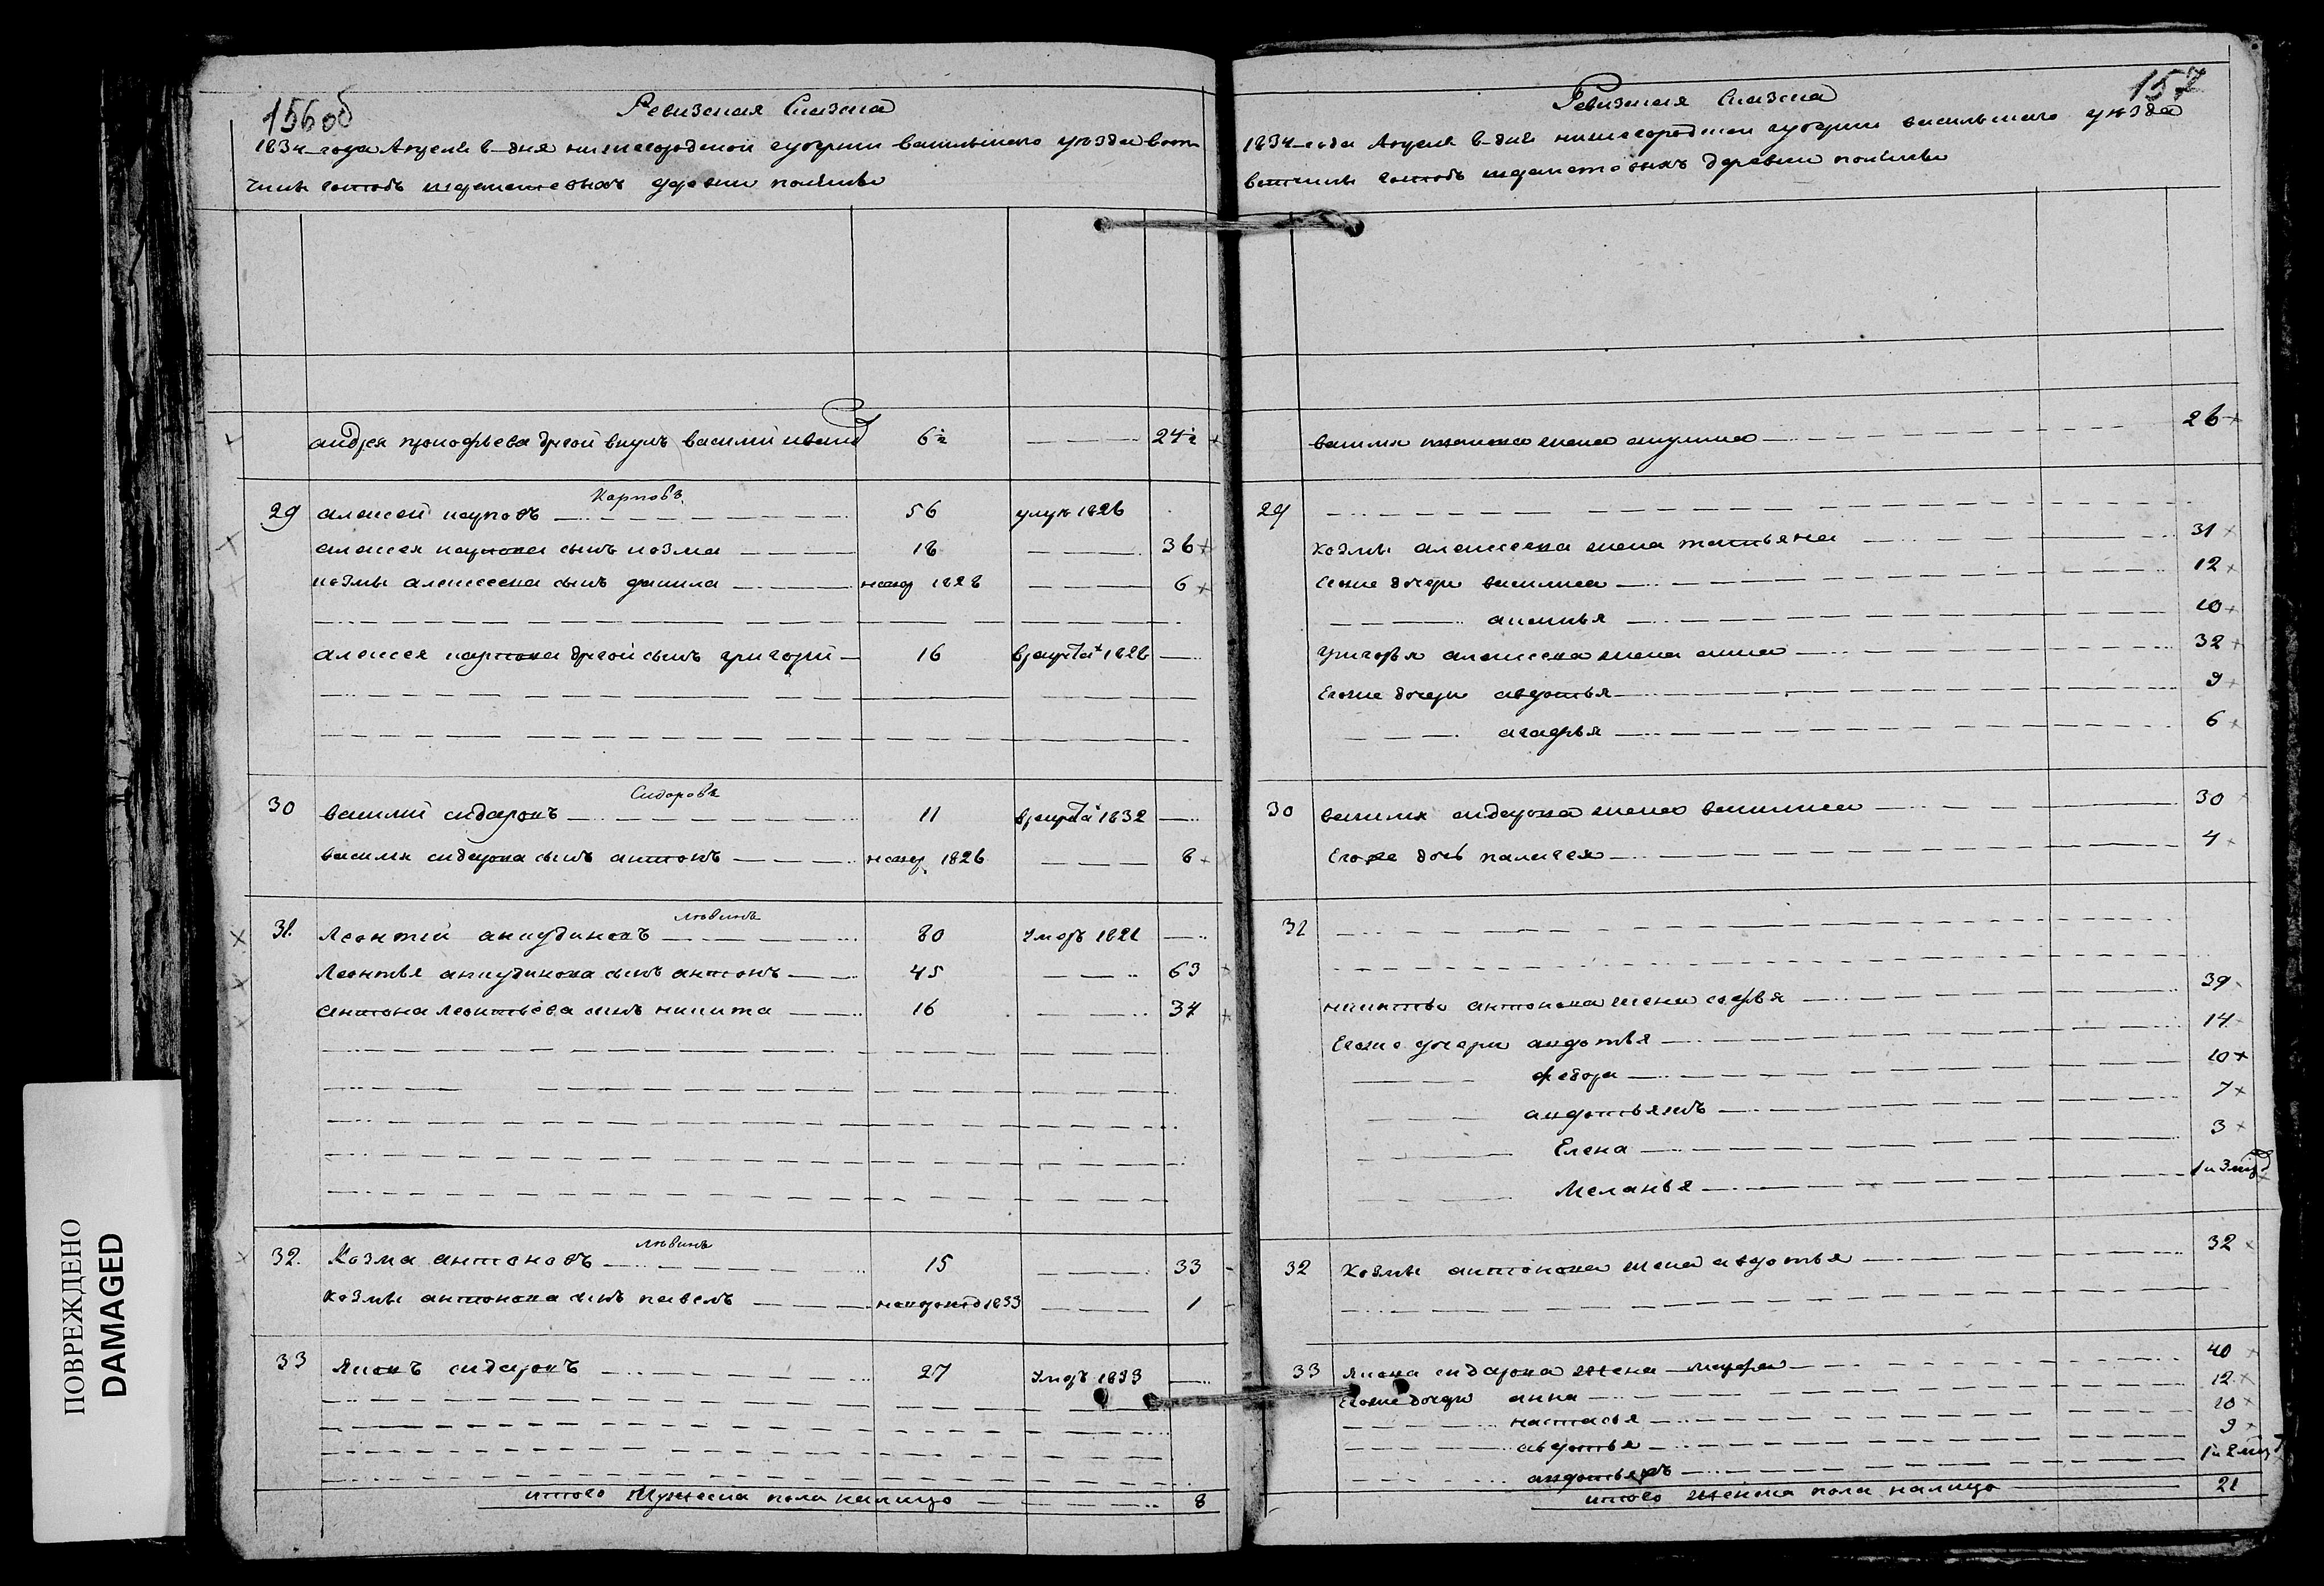 156об
Ревизская Сказка
1834 года Апреля 8 дня нижегородской губернии васильского уезда вот
чины деревни
андрея прокофьева другой внукъ василий ивановъ 6½ 24½
Карповъ
29 алексей карповъ 56 умре 1826
алексея карпова сынъ козма 18 36
козмы алексеева сынъ данила 1828 6
алексея карпова другой сынъ григорий 16 1828
Сидоровъ
30 василий сидоровъ 11 1832
василья сидорова сынъ антонъ 1826 8
львинъ
31. Леонтей анкудиновъ 80 умеръ 1821
Леонтья анкудинова сынъ антонъ 45 63
антона леонтьева сынъ никита 16 34
львинъ
32. Козма антоновъ 15 33
козмы антонова сынъ павелъ 1833 1
33 яковъ сидоровъ 27 умеръ 1833
итого Мужеска пола налицо 8
157
Ревизская Сказка
1834 года Апреля 8 дня нижегородской губернии васильского уезда
вотчины деревни
василья иванова жена акулина 26
29
козмы алексеева жена татьяна 31
Егоже дочери василиса 12
аксинья 10
григорья алексеева жена анна 32
Егоже дочери авдотья 9
агафья 6
30 василья сидорова жена василиса 30
Егоже дочь палагея 4
31
никиты антонова жена софья 39
Егоже дочери авдотья 14
федора 10
7
Елена 3
Меланья 1 и 3
32 козмы антонова жена авдотья 32
33 якова сидорова жена марфа 40
Егоже дочери анна 12
настасья 10
авдотья 9
1 и 2
итого женска пола налицо 21
ПОВРЕЖДЕНО
DAMAGED